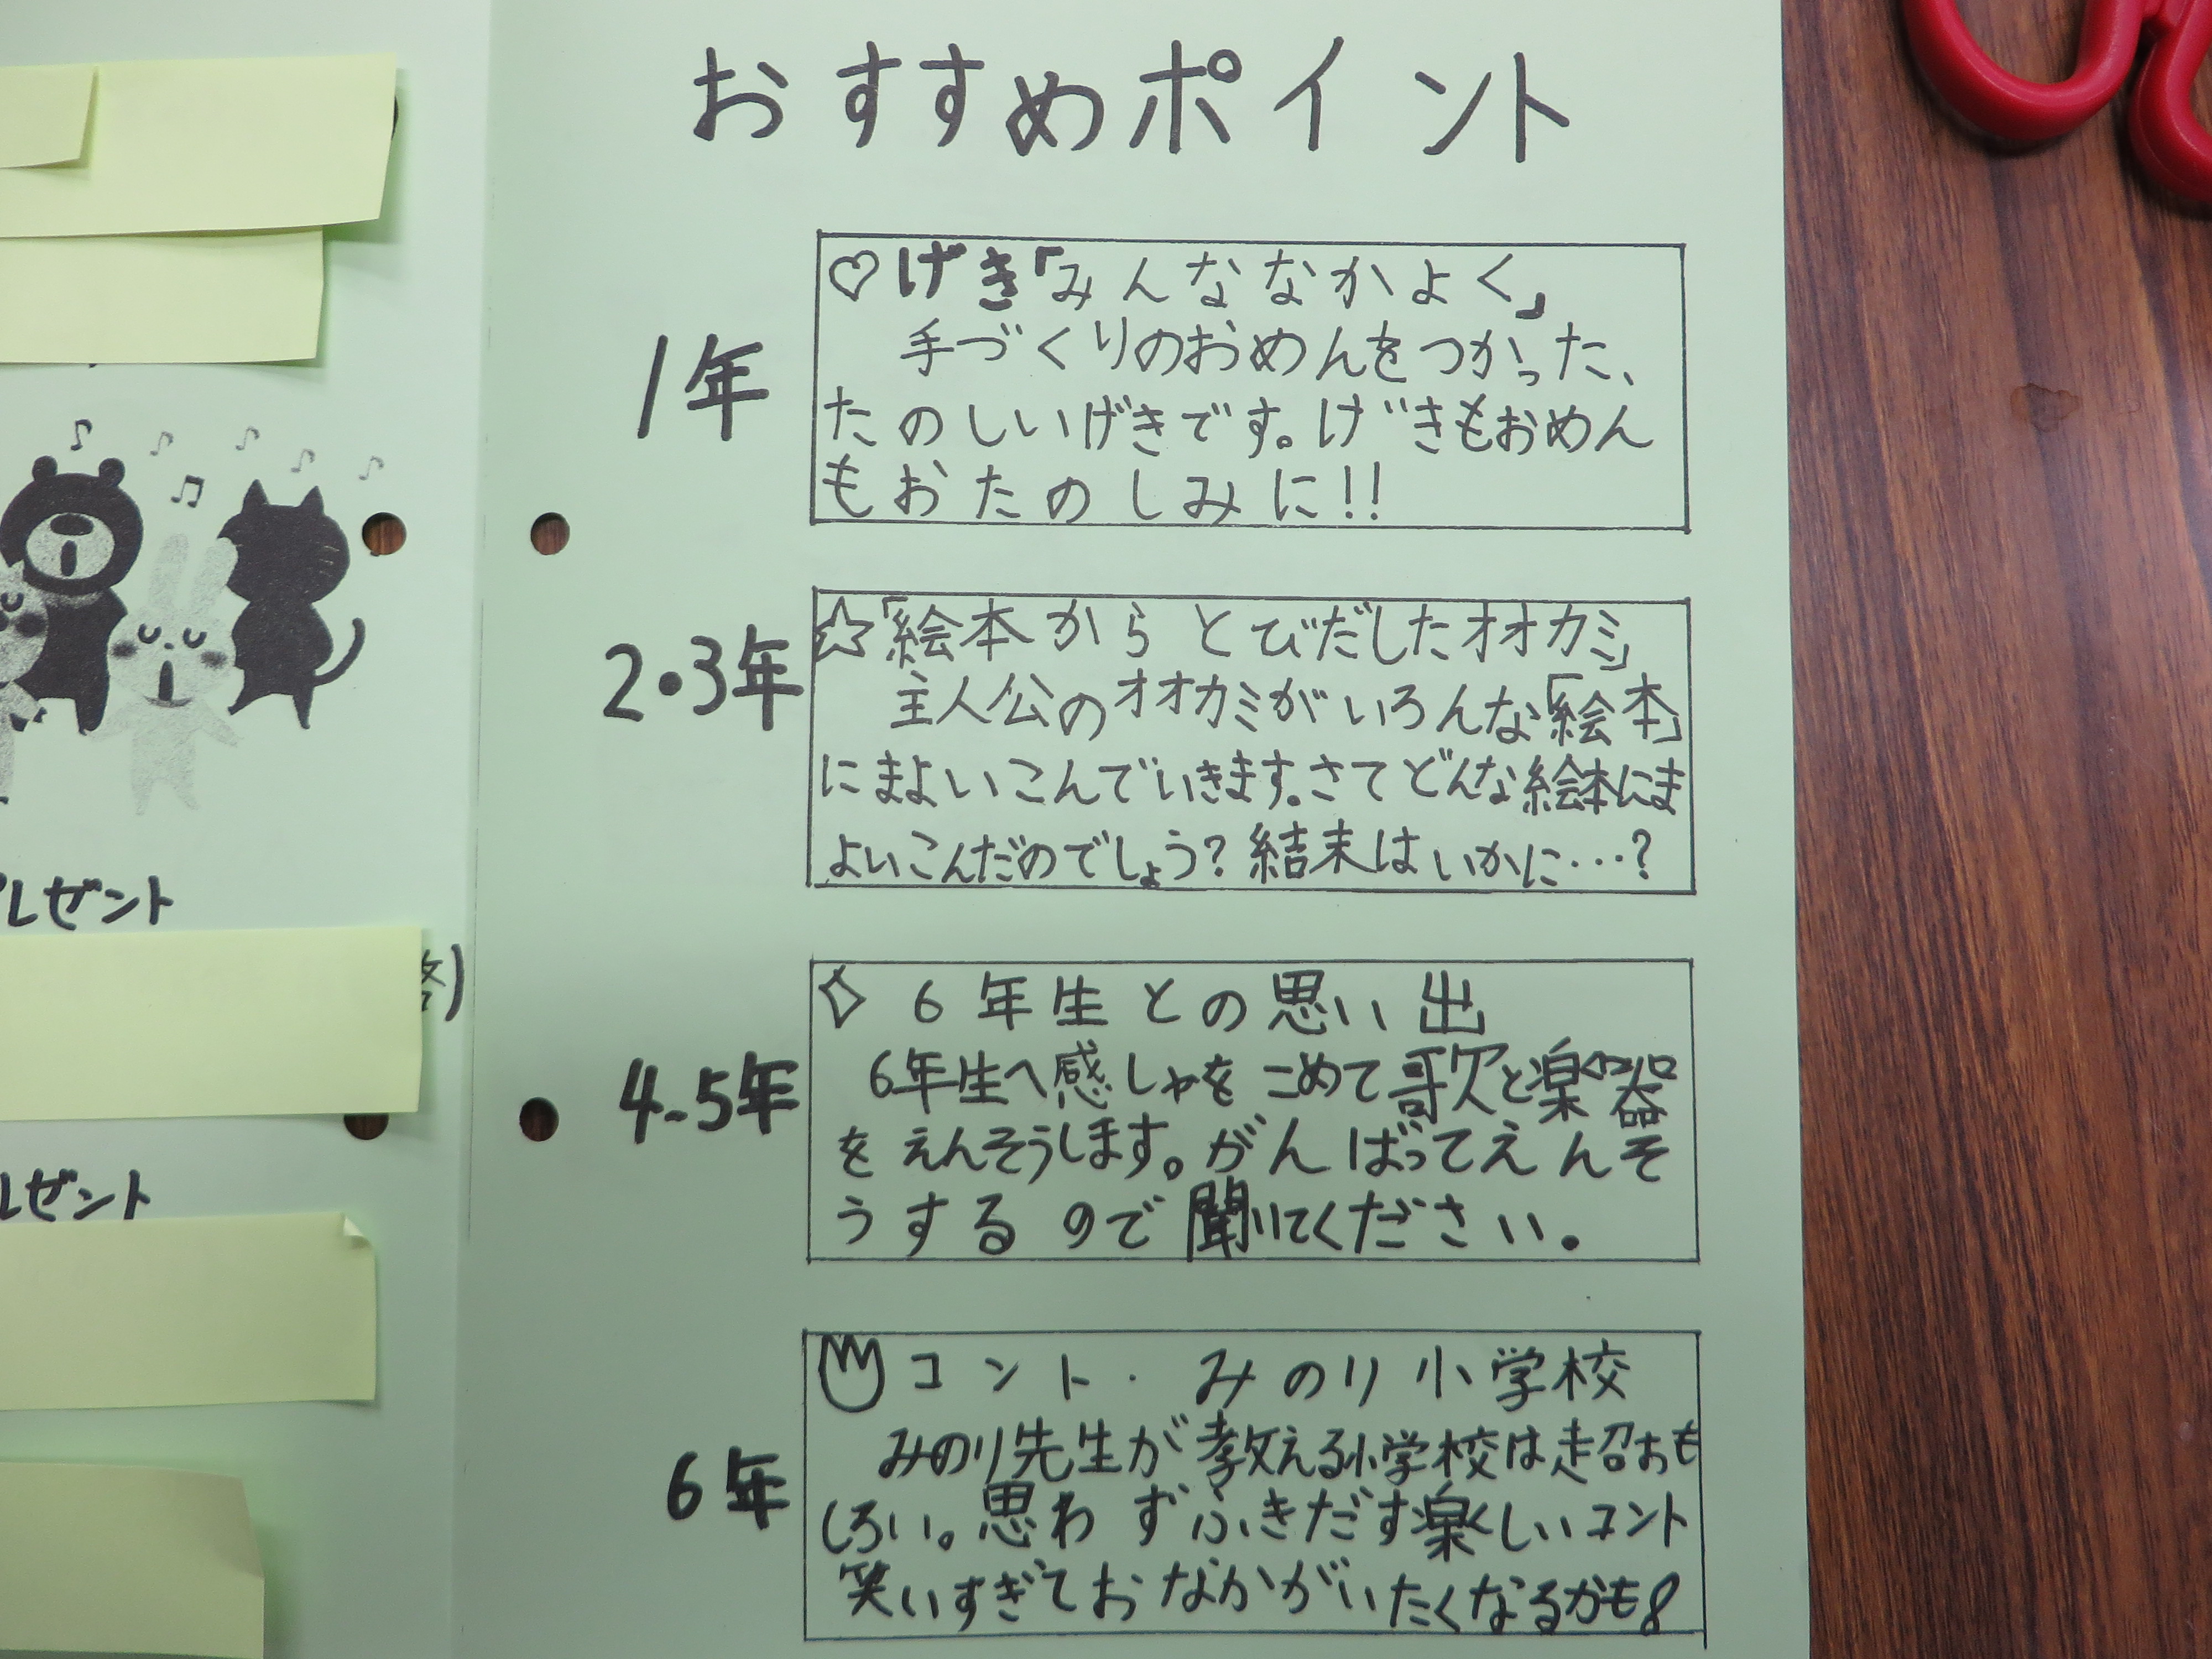 おすすめポイント
1年
♡げき「みんななかよく」
手づくりのおめんをつかった、
たのしいげきです。げきもおめん
もおたのしみに!!
2・3年
☆「絵本からとびだしたオオカミ」
主人公のオオカミがいろんな「絵本」
にまよいこんでいきます。さてどんな絵本にま
よいこんだのでしょう?結末はいかに…?
4.5年
6年生との思い出
6年生へ感しゃをこめて歌と楽器
をえんそうします。がんばってえんそ
うするので聞いてください。
6年
コント・みのり小学校
みのり先生が教える小学校は超おも
しろい。思わずふきだす楽しいコント
笑いすぎておなかがいたくなるかも
レゼント
ゼント